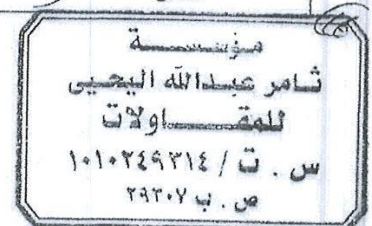 مؤسسة
ثامر عبدالله اليحيى
للمقاولات
س . ت / ١٠١٠٢٤٩٣١٤
ص . ب ٢٩٣٠٧